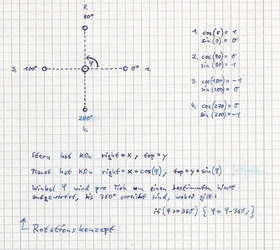 2.
90°
3. 180°
φ
0° 1.
270°
4.
1. cos(0) = 1
sin(0) = 0
2. cos(90) = 0
sin(90) = 1
3. cos(180) = -1
sin(180) = 0
4. cos(270) = 0
sin(270) = -1
Stern hat KOn right = x, top = y
Planet hat KOn right = x + cos(φ), top = y + sin(φ)
Winkel φ wird pro Tick um einen bestimmten Wert
aufgewertet, bis 360° erreicht sind, wobei gilt:
if (φ >= 360) { φ = φ - 360;
Rotationskonzept